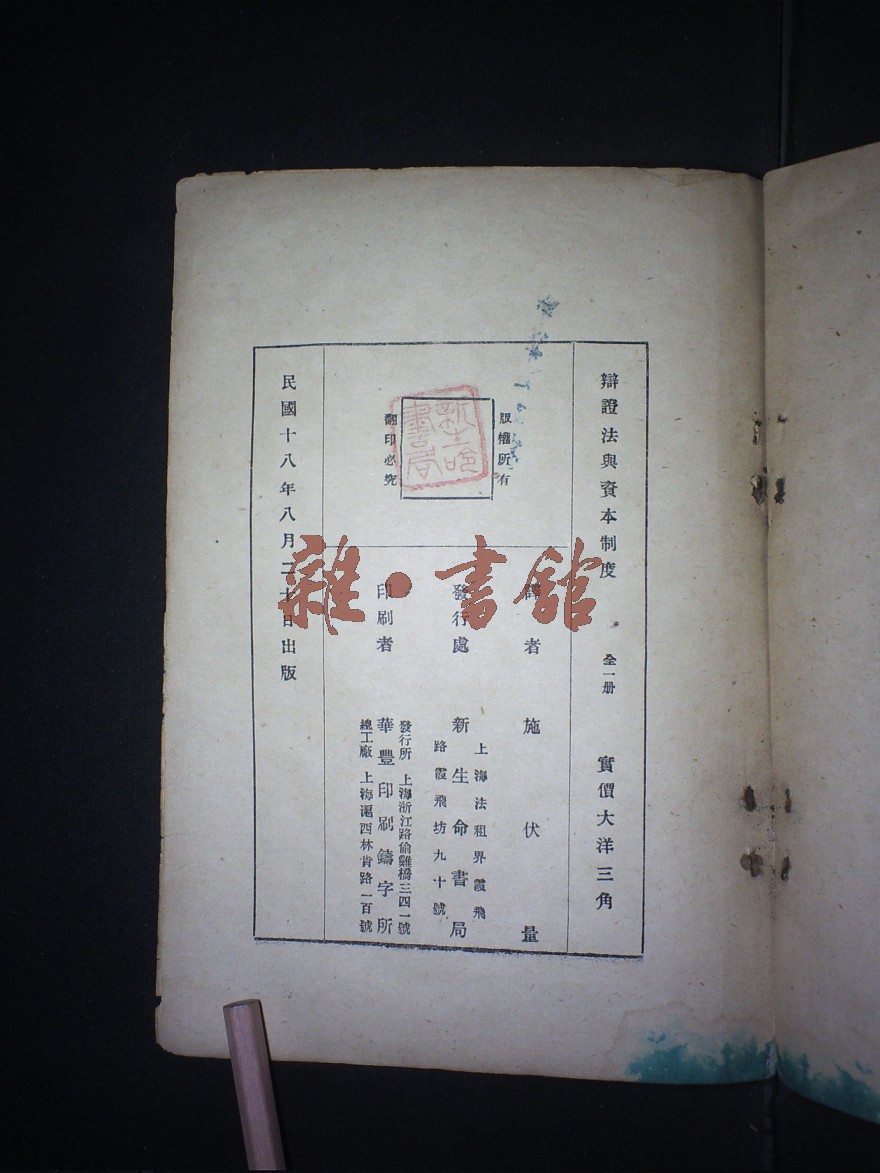 辯證法與資本制度 全一册 實價大洋三角
版權所有
翻印必究
新生命書局
譯者 施伏量
發行處 新生命書局
上海法租界霞飛
路霞飛坊九十號
印刷者 華豐印刷鑄字所
發行所 上海浙江路偷雞橋三四一號
總工廠 上海滬西林肯路一百號
民國十八年八月二十日出版
雜·書館